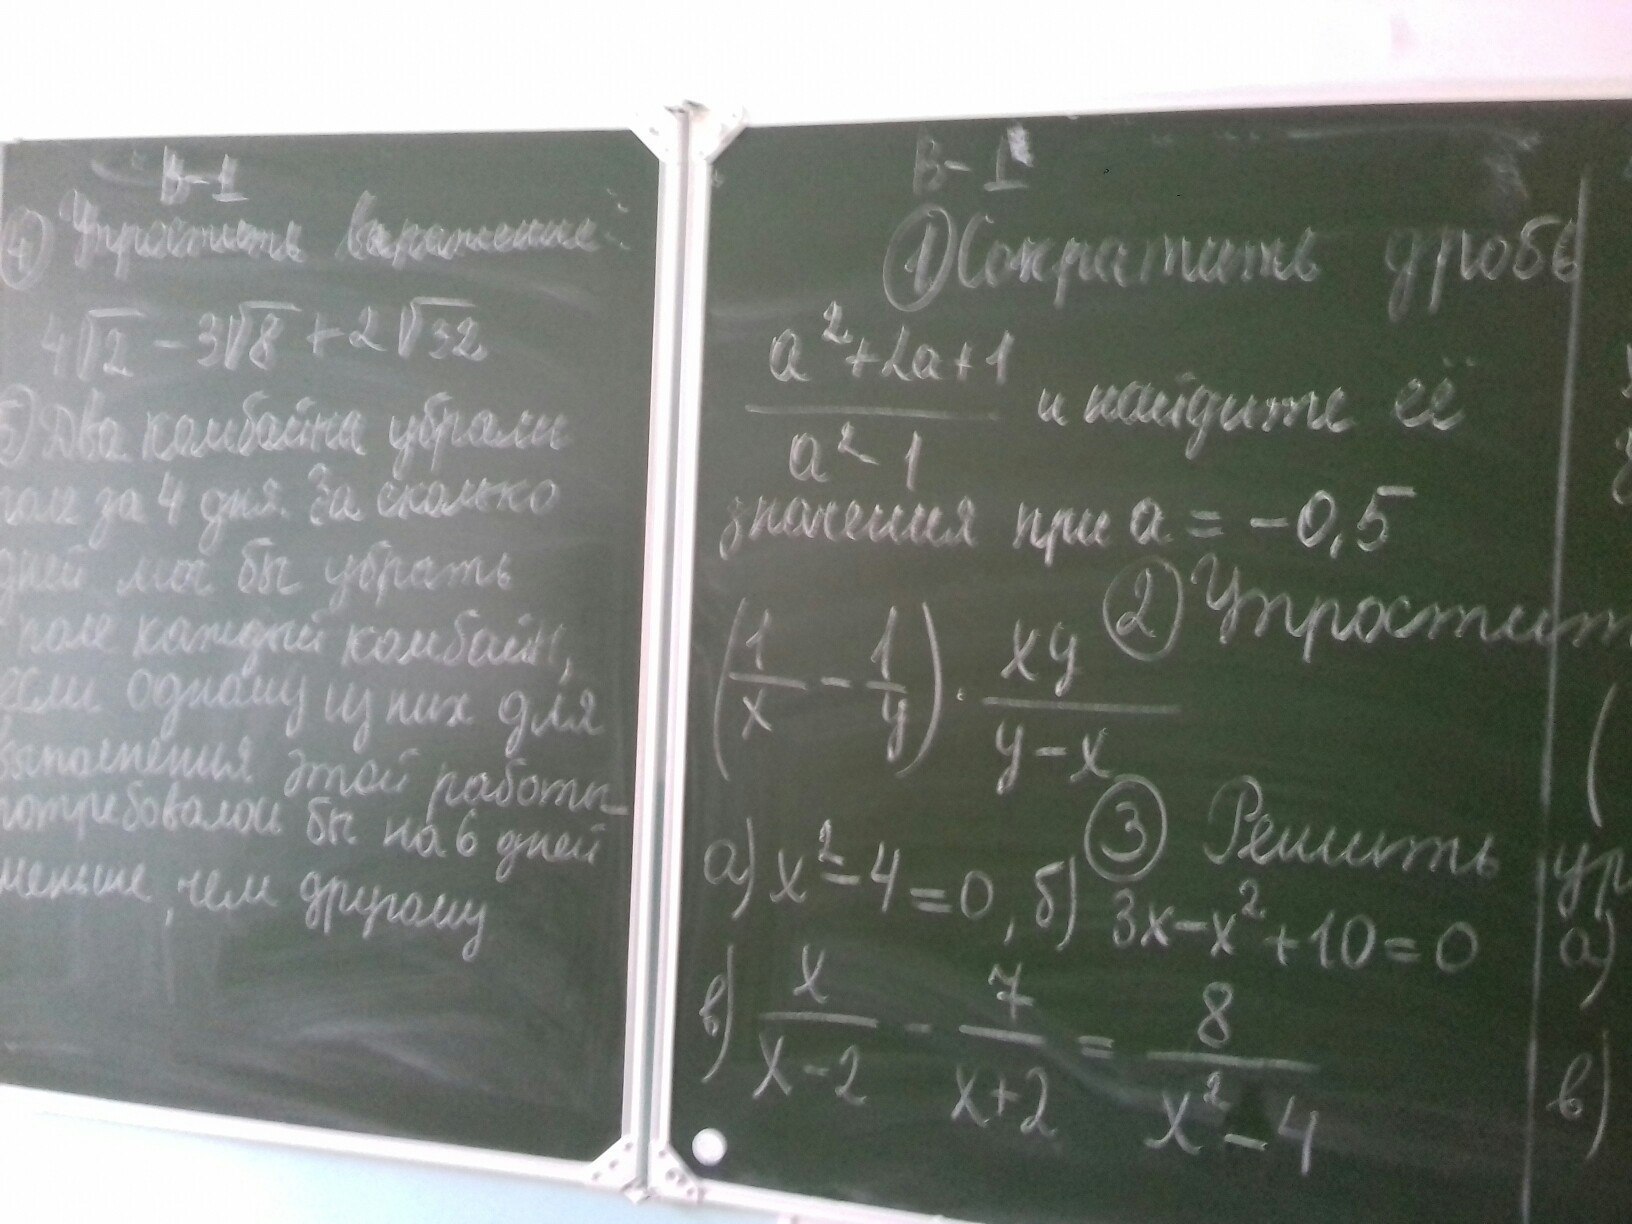 В-1
④ Упростить выражение:
4√2 - 3√8 + 2√32
5) Два комбайна убрали
поле за 4 дня. За сколько
дней мог бы убрать
поле каждый комбайн,
если одному из них для
выполнения этой работы
потребовалось бы на 6 дней
меньше, чем другому
В-1
① Сократить дробь
(a²+2a+1)/(a²-1) и найдите её
значения при a = -0,5
② Упростить
(1/x - 1/y) · xy/(y-x)
③ Решить ур
а) x²-4=0, б) 3x-x²+10=0
в) x/(x-2) - 7/(x+2) = 8/(x²-4)
(
а)
в)